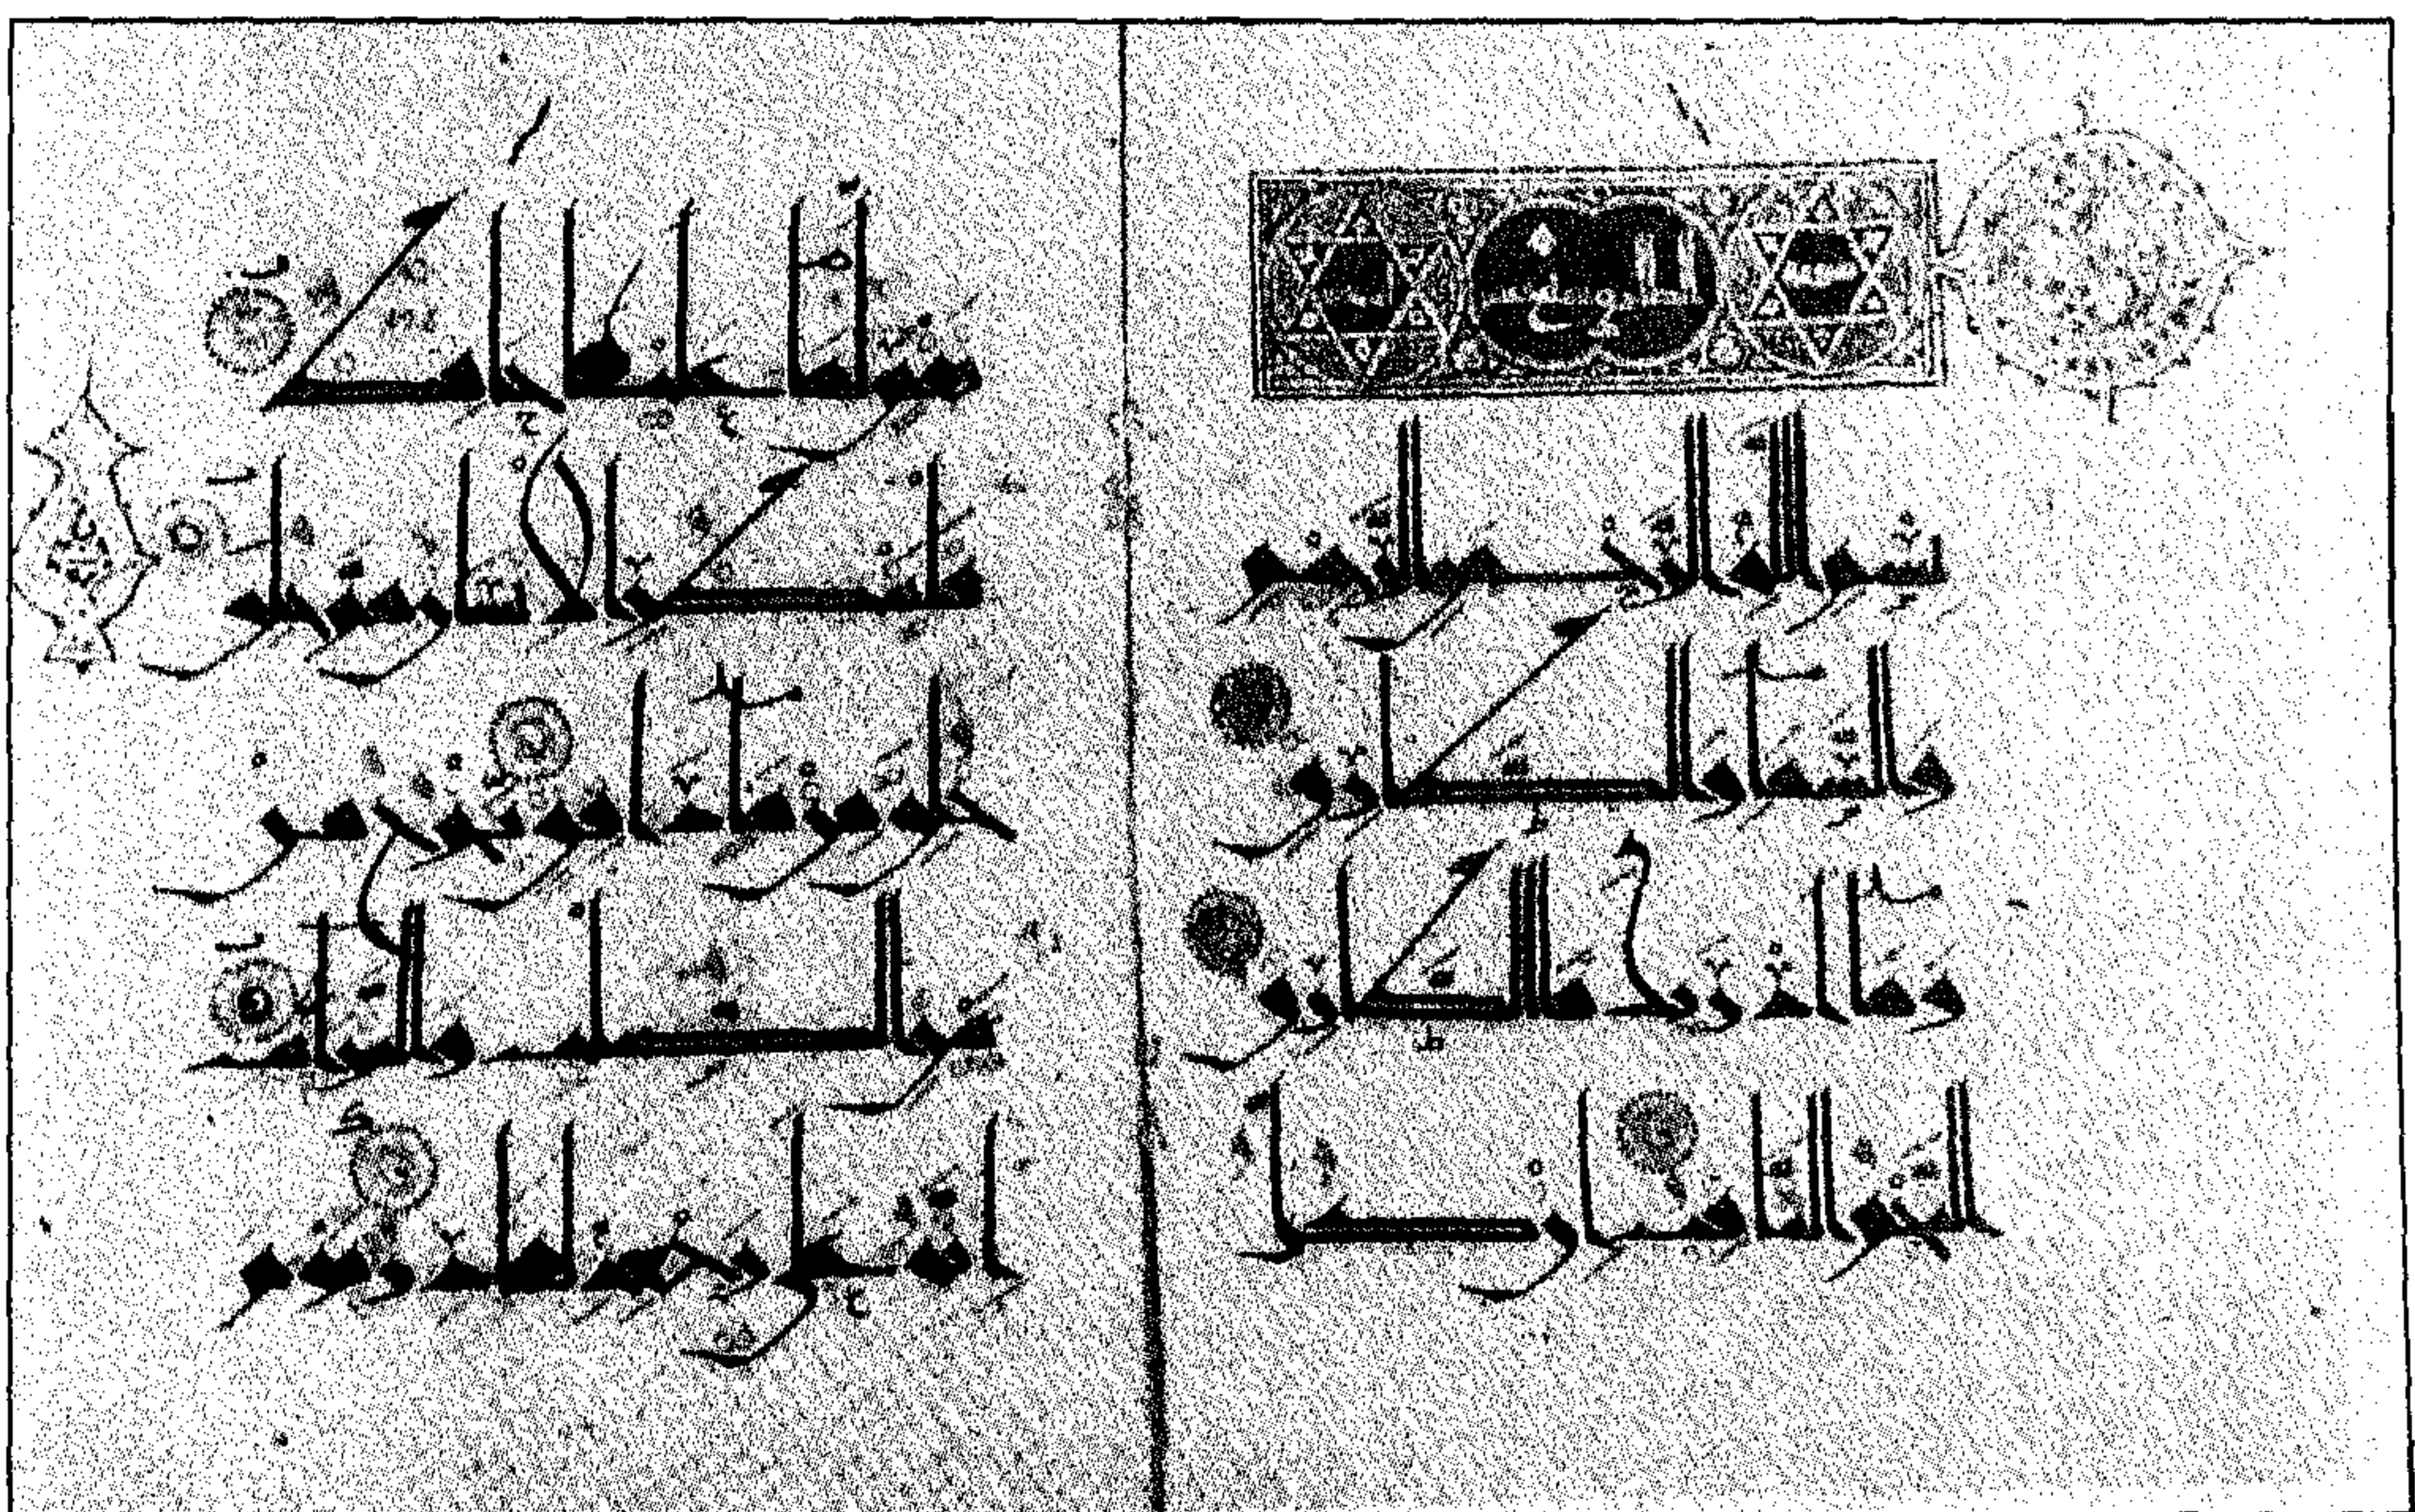 بسم الله الرحمن الرحيم
والسماء والطارق
وما ادريك ما الطارق
النجم الثاقب ان كل
نفس لما عليها حافظ
فلينظر الانسان مم خلق
خلق من ماء دافق يخرج من
بين الصلب والترائب
انه على رجعه لقادر يوم